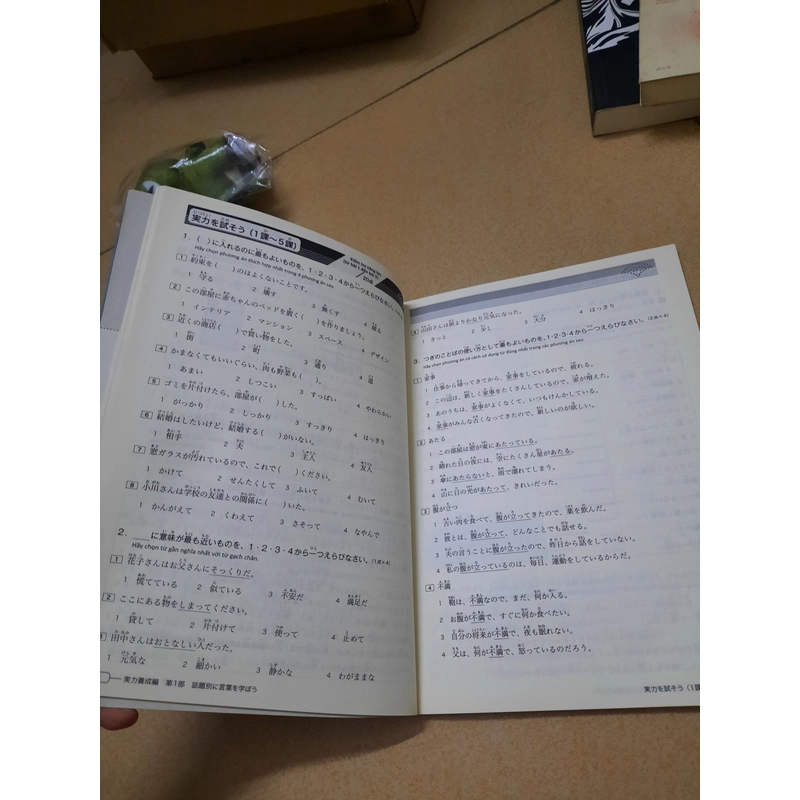 実力を試そう（1課～5課）
1．（　）に入れるのに最もよいものを、1・2・3・4から一つえらびなさい。
Hãy chọn phương án thích hợp nhất trong 4 phương án sau.
20点
1 約束を（　）のはよくないことです。
1 守る 2 壊す 3 無くす 4 破る
2 この部屋に赤ちゃんのベッドを置く（　）を作りましょう。
1 インテリア 2 マンション 3 スペース 4 デザイン
3 近くの商店（　）で買い物をした。
1 街 2 町 3 通り 4 道
4 かまなくてもいいぐらい、肉も野菜も（　）。
1 あまい 2 しつこい 3 すっぱい 4 やわらかい
5 ゴミを片付けたら、部屋が（　）した。
1 がっかり 2 しっかり 3 すっきり 4 はっきり
6 結婚はしたいけど、結婚する（　）がいない。
1 相手 2 夫 3 主人 4 友人
7 窓ガラスが汚れているので、これで（　）ください。
1 かけて 2 せんたくして 3 ふいて 4 むいて
8 小川さんは学校の友達との関係に（　）いた。
1 かんがえて 2 くわえて 3 さそって 4 なやんで
2．＿＿に意味が最も近いものを、1・2・3・4から一つえらびなさい。（1点×4）
Hãy chọn từ gần nghĩa nhất với từ gạch chân.
1 花子さんはお父さんにそっくりだ。
1 慌てている 2 似ている 3 不安だ 4 満足だ
2 ここにある物をしまってください。
1 貸して 2 片付けて 3 使って 4 止めて
田中さんはおとなしい人だった。
1 元気な 2 細かい 3 静かな 4 わがままな
実力養成編 第1部 話題別に言葉を学ぼう
4 山田さんは前よりかなり元気になった。
1 きっと 2 少し 3 大分 4 はっきり
3．つぎのことばの使い方として最もよいものを、1・2・3・4から一つえらびなさい。（2点×4）
Hãy chọn phương án có cách sử dụng từ đúng nhất trong các phương án sau.
1 家事
1 仕事から帰ってきてから、家事をしているので、疲れる。
2 この辺は、新しく家事をたくさんしているので、家が増えた。
3 あのうちは、家事がよくなくて、いつもけんかしている。
4 家事がみんな古くなってきたので、新しいのが欲しい。
2 あたる
1 この部屋は窓が東にあたっている。
2 晴れた日の夜には、空にたくさん星があたる。
3 傘にあたらないと、雨で濡れてしまう。
4 山に日の光があたって、きれいだった。
3 腹が立つ
1 古い肉を食べて、腹が立ってきたので、薬を飲んだ。
2 彼とは、腹が立って、どんなことでも話せる。
3 夫の言うことに腹が立ったので、昨日から話をしていない。
4 私の腹が立っているのは、毎日、運動をしているからだ。
4 不満
1 鞄は、不満なので、まだ、何か入る。
2 お腹が不満で、すぐに何か食べたい。
3 自分の将来が不満で、夜も眠れない。
4 父は、何が不満で、怒っているのだろう。
実力を試そう（1課